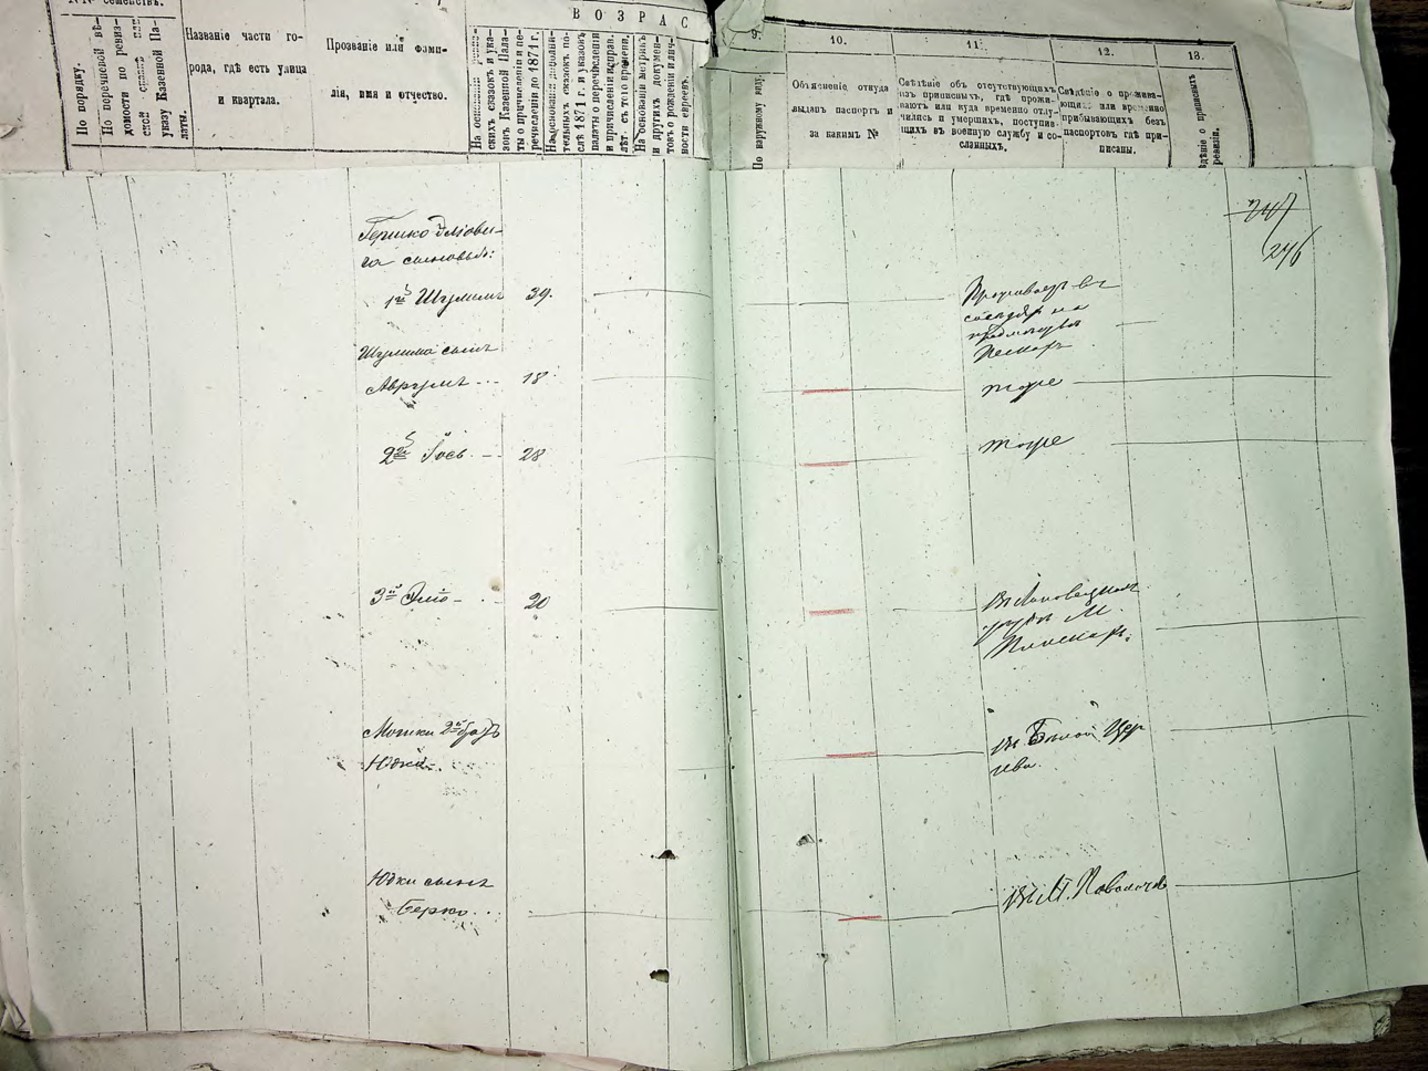 №№ семействъ.
ВОЗРАС
По порядку.
По перечневой вѣ-
домости по ревиз-
ской
указу Казенной Па-
латы.
Названіе части го-
рода, гдѣ есть улица
и квартала.
Прозваніе или фами-
лія, имя и отчество.
На основаніи
скихъ сказокъ и ука-
зовъ Казенной Пала-
ты о причисленіи и пе-
речисленіи до 1871 г.
На основаніи дополни-
тельныхъ сказокъ по-
слѣ 1871 г. и указовъ
палаты о перечисленіи
и причисленіи исправ.
лѣтъ съ того времени.
На основаніи метрикъ
и другихъ докумен-
товъ о рожденіи и лич-
ности евреевъ.
9.
По наружному виду.
10.
Объясненіе, откуда
выданъ паспортъ и
за какимъ №
11.
Свѣдѣніе объ отсутствующихъ
изъ приписныхъ, гдѣ прожи-
ваютъ или куда временно отлу-
чились и умершихъ, поступив-
щихъ въ военную службу и со-
сланныхъ.
12.
Свѣдѣніе о прожива-
ющихъ или временно
прибывающихъ безъ
паспортовъ гдѣ при-
писаны.
13.
дѣніе о приписныхъ
ревизіи.
246
Гершко Эліови-
ча сыновья:
1й Шулимъ 39.
Проживаетъ въ
Шулима сынъ
Аврумъ 18
тоже
2й Іось 28
тоже
3й Эліо 20
М.
Мошки 2й братъ
Юдка
въ Бѣлой Цер
кви.
Юдки сынъ
Берко
въ М. Паволочѣ